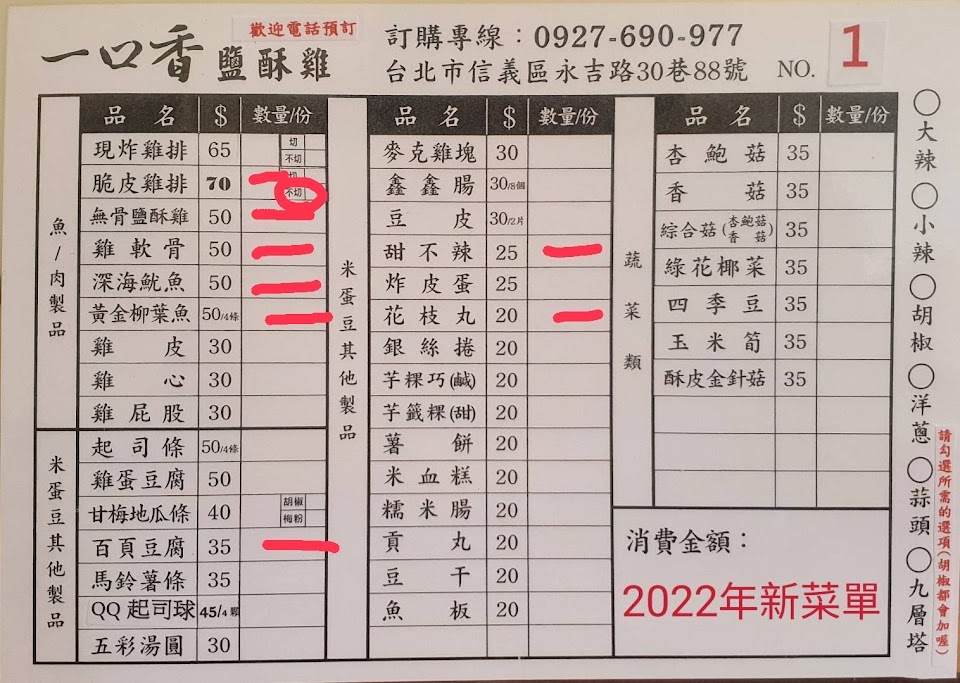 歡迎電話預訂
一口香 鹽酥雞
訂購專線：0927-690-977
台北市信義區永吉路30巷88號 NO. 1
魚/肉製品
品名 $ 數量/份
現炸雞排 65 切 不切
脆皮雞排 70 切 不切
無骨鹽酥雞 50
雞軟骨 50
深海魷魚 50
黃金柳葉魚 50/4條
雞皮 30
雞心 30
雞屁股 30
米蛋豆其他製品
起司條 50/4條
雞蛋豆腐 50
甘梅地瓜條 40 胡椒 梅粉
百頁豆腐 35
馬鈴薯條 35
QQ起司球 45/4顆
五彩湯圓 30
米蛋豆其他製品
品名 $ 數量/份
麥克雞塊 30
鑫鑫腸 30/8個
豆皮 30/2片
甜不辣 25
炸皮蛋 25
花枝丸 20
銀絲捲 20
芋粿巧(鹹) 20
芋籤粿(甜) 20
薯餅 20
米血糕 20
糯米腸 20
貢丸 20
豆干 20
魚板 20
蔬菜類
品名 $ 數量/份
杏鮑菇 35
香菇 35
綜合菇(杏鮑菇 香菇) 35
綠花椰菜 35
四季豆 35
玉米筍 35
酥皮金針菇 35
消費金額：
2022年新菜單
○大辣○小辣○胡椒○洋蔥○蒜頭○九層塔
請勾選所需的選項(胡椒都會加喔)